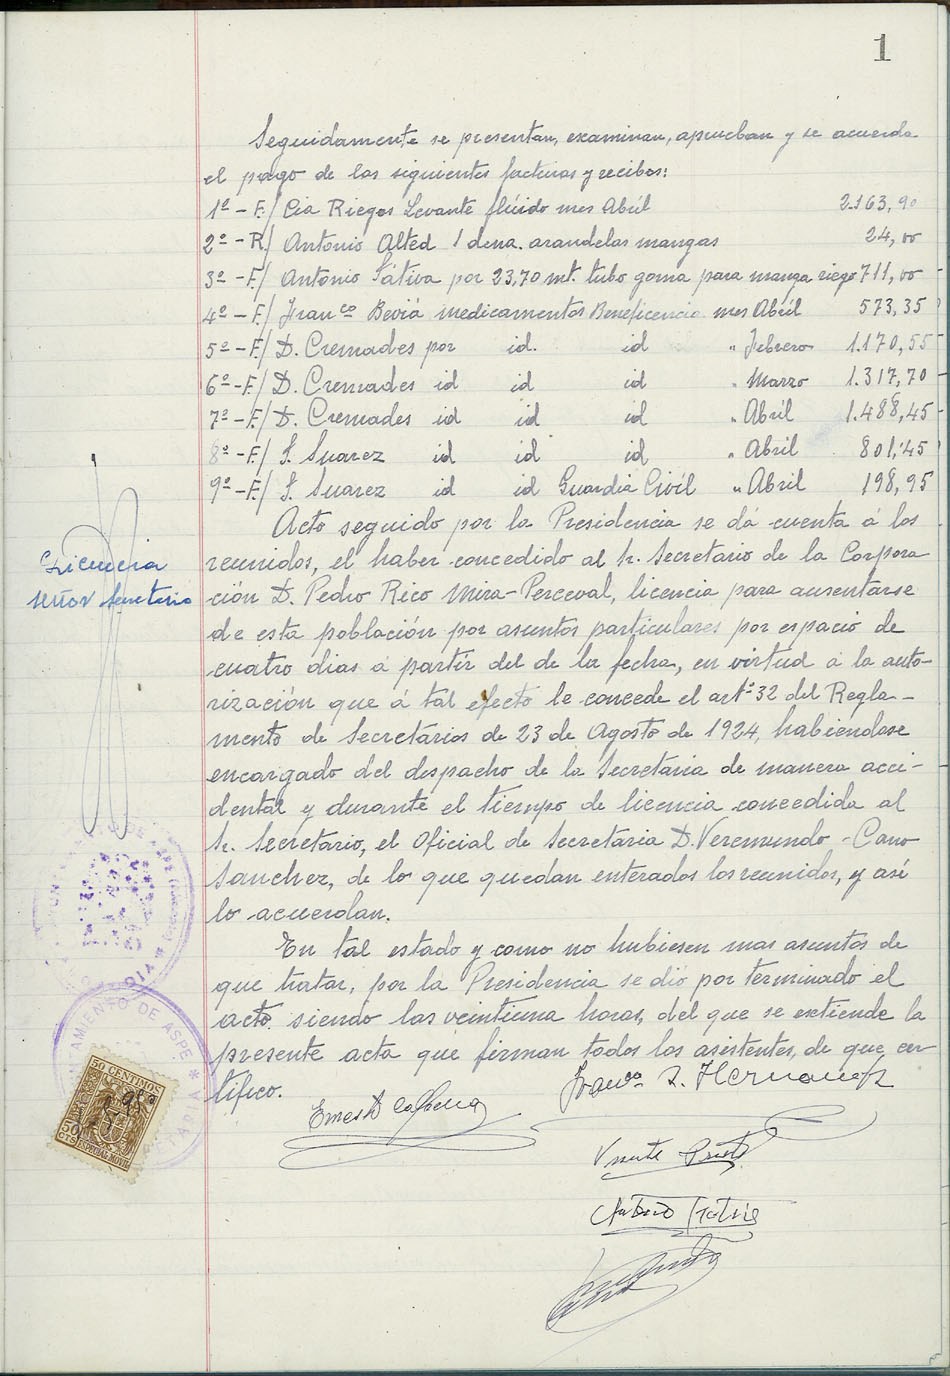 1
Seguidamente se presentan, examinan, aprueban y se acuerda
el pago de las siguientes facturas y recibos:
1º - F/ Cia Riegos Levante flúido mes Abril 2.163,90
2º - R/ Antonio Alted 1 dcna. arandelas mangas 24,00
3º - F/ Antonio Sátiva por 23,70 mt. tubo goma para manga riego 711,00
4º - F/ Franco Beviá medicamentos Beneficencia mes Abril 573,35
5º - F/ D. Cremades por id. id " Febrero 1.170,55
6º - F/ D. Cremades id id id " Marzo 1.317,70
7º - F/ D. Cremades id id id " Abril 1.488,45
8º - F/ S. Suarez id id id " Abril 801,45
9º - F/ S. Suarez id id Guardia Civil " Abril 198,95
Acto seguido por la Presidencia se dá cuenta á los
reunidos, el haber concedido al Sr. Secretario de la Corpora
ción D. Pedro Rico Mira-Perceval, licencia para ausentarse
de esta población por asuntos particulares por espacio de
cuatro dias á partir del de la fecha, en virtud á la auto-
rización que á tal efecto le concede el artº 32 del Regla-
mento de Secretarios de 23 de Agosto de 1924, habiendose
encargado del despacho de la Secretaria de manera acci-
dental y durante el tiempo de licencia concedida al
Sr. Secretario, el Oficial de Secretaria D. Veremundo - Cano
Sanchez, de lo que quedan enterados los reunidos, y así
lo acuerdan.
En tal estado y como no hubiesen mas asuntos de
que tratar, por la Presidencia se dio por terminado el
acto siendo las veintiuna horas, del que se extiende la
presente acta que firman todos los asistentes, de que cer
tifico.
Licencia
señor Secretario
Franco Hernandez
Vicente Prieto
Antonio
AYUNTAMIENTO DE ASPE
50 CENTIMOS
50 CTS
ESPECIAL MOVIL